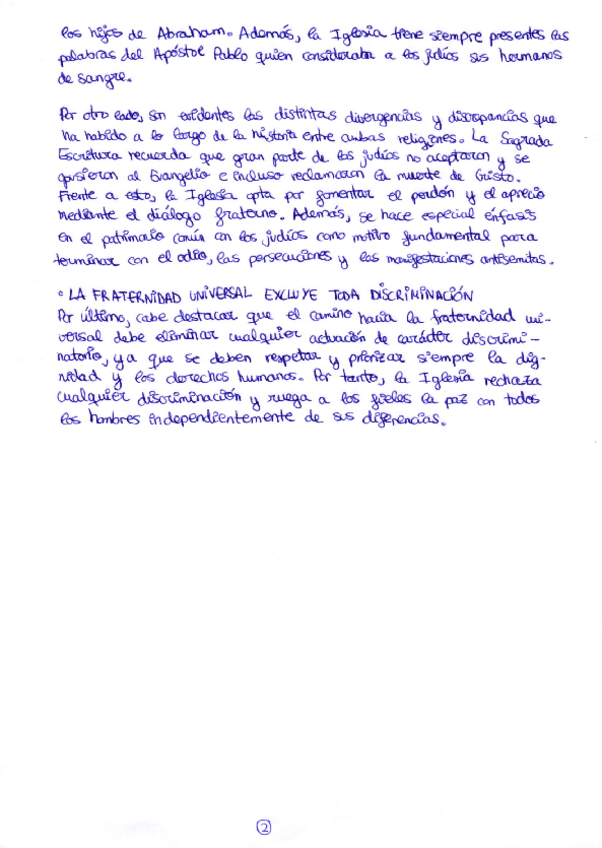 los hijos de Abraham. Además, la Iglesia tiene siempre presentes las
palabras del Apóstol Pablo quien consideraba a los judíos sus hermanos
de sangre.
Por otro lado, son evidentes las distintas divergencias y discrepancias que
ha habido a lo largo de la historia entre ambas religiones. La Sagrada
Escritura recuerda que gran parte de los judíos no aceptaron y se
opusieron al Evangelio e incluso reclamaron la muerte de Cristo.
Frente a esto, la Iglesia opta por fomentar el perdón y el aprecio
mediante el diálogo fraterno. Además, se hace especial énfasis
en el patrimonio común con los judíos como motivo fundamental para
terminar con el odio, las persecuciones y las manifestaciones antisemitas.
° LA FRATERNIDAD UNIVERSAL EXCLUYE TODA DISCRIMINACIÓN
Por último, cabe destacar que el camino hacia la fraternidad uni-
versal debe eliminar cualquier actuación de carácter discrimi-
natorio, ya que se deben respetar y priorizar siempre la dig-
nidad y los derechos humanos. Por tanto, la Iglesia rechaza
cualquier discriminación y ruega a los fieles la paz con todos
los hombres independientemente de sus diferencias.
2